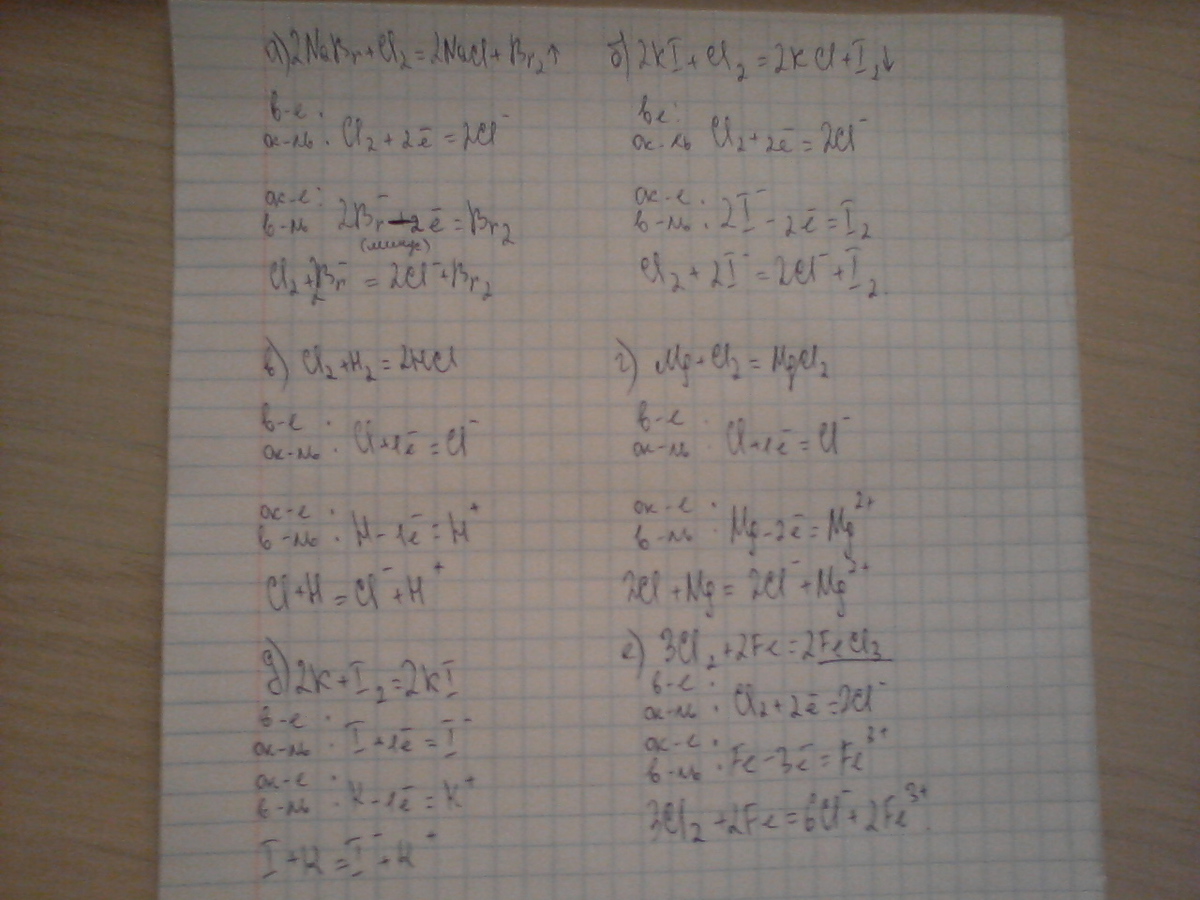 а) 2NaBr + Cl₂ = 2NaCl + Br₂↑
в-е :
ок-ль : Cl₂ + 2ē = 2Cl⁻
ок-е :
в-ль 2Br⁻ - 2ē = Br₂
(минус)
Cl₂ + 2Br⁻ = 2Cl⁻ + Br₂
б) 2KI + Cl₂ = 2KCl + I₂↓
в-е :
ок-ль Cl₂ + 2ē = 2Cl⁻
ок-е :
в-ль : 2I⁻ - 2ē = I₂
Cl₂ + 2I⁻ = 2Cl⁻ + I₂.
в) Cl₂ + H₂ = 2HCl
в-е :
ок-ль : Cl + 1ē = Cl⁻
ок-е :
в-ль : H - 1ē = H⁺
Cl + H = Cl⁻ + H⁺
г) Mg + Cl₂ = MgCl₂
в-е :
ок-ль : Cl + 1ē = Cl⁻
ок-е :
в-ль : Mg - 2ē = Mg²⁺
2Cl + Mg = 2Cl⁻ + Mg²⁺
д) 2K + I₂ = 2KI
в-е :
ок-ль : I + 1ē = I⁻
ок-е :
в-ль : K - 1ē = K⁺
I + K = I⁻ + K⁺
е) 3Cl₂ + 2Fe = 2FeCl₃
в-е :
ок-ль : Cl₂ + 2ē = 2Cl⁻
ок-е :
в-ль : Fe - 3ē = Fe³⁺
3Cl₂ + 2Fe = 6Cl⁻ + 2Fe³⁺